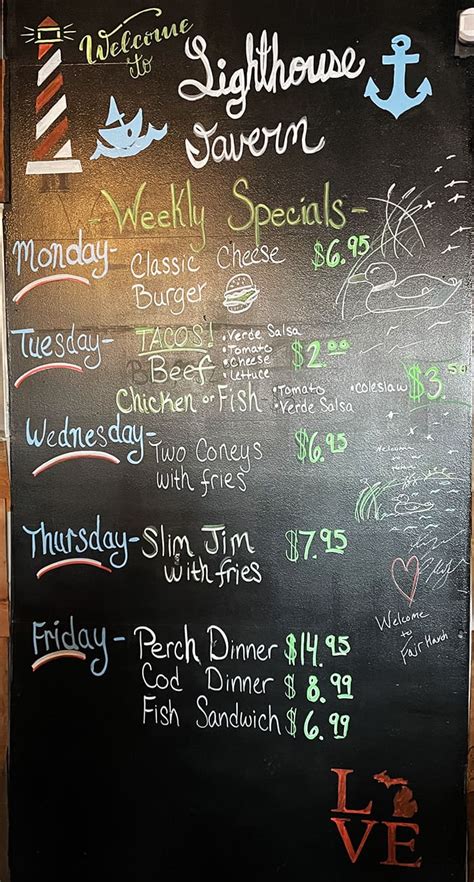 Welcome
to
Lighthouse
Tavern
- Weekly Specials -
Monday- Classic Cheese $6.95
Burger
Tuesday- TACOS! •Verde Salsa
•Tomato
Beef •Cheese $2.00
•Lettuce
Chicken or Fish •Tomato •coleslaw $3.50
•Verde Salsa
Wednesday- Two Coneys $6.95
with fries
Thursday- Slim Jim $7.95
with fries
Friday- Perch Dinner $14.95
Cod Dinner $8.99
Fish Sandwich $6.99
Welcome
to
Fair Haven
LOVE